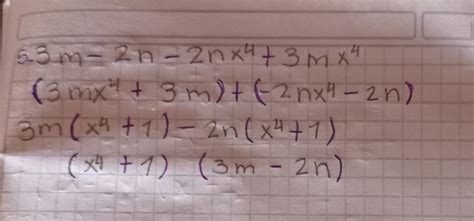 5. 3m - 2n - 2nx⁴ + 3mx⁴
(3mx⁴ + 3m) + (-2nx⁴ - 2n)
3m(x⁴ + 1) - 2n(x⁴ + 1)
(x⁴ + 1) (3m - 2n)